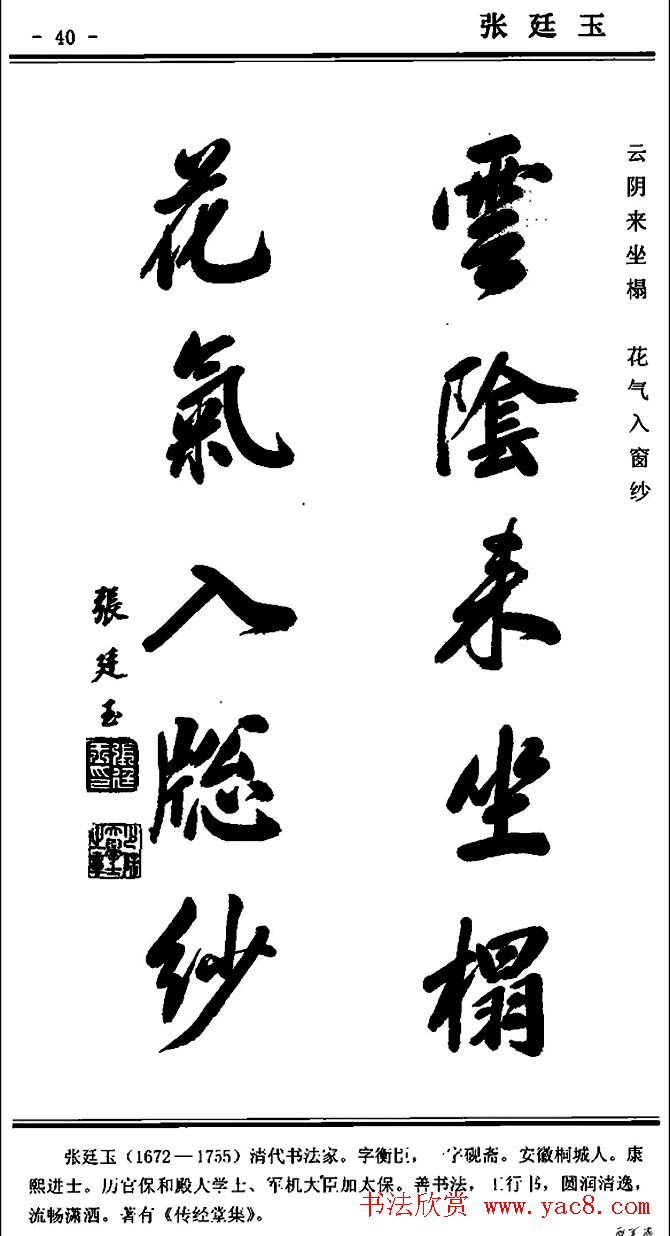 - 40 -
张廷玉
云阴来坐榻 花气入窗纱
雲陰来坐榻
花氣入牎紗
張廷玉
张廷玉（1672—1755）清代书法家。字衡臣，一字砚斋。安徽桐城人。康
熙进士。历官保和殿大学士、军机大臣加太保。善书法，工行书，圆润清逸，
流畅潇洒。著有《传经堂集》。
书法欣赏 www.yac8.com